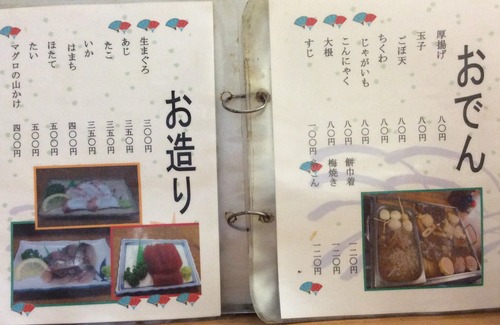 おでん
厚揚げ 八〇円
玉子 八〇円
ごぼ天 八〇円
ちくわ 八〇円
じゃがいも 八〇円
こんにゃく 八〇円
大根 八〇円
すじ 一〇〇円
餅巾着 一二〇円
梅焼き 一二〇円
一二〇円
お造り
生まぐろ 三〇〇円
あじ 三五〇円
たこ 三五〇円
いか 三五〇円
はまち 四〇〇円
ほたて 五〇〇円
たい 五〇〇円
マグロの山かけ 四〇〇円